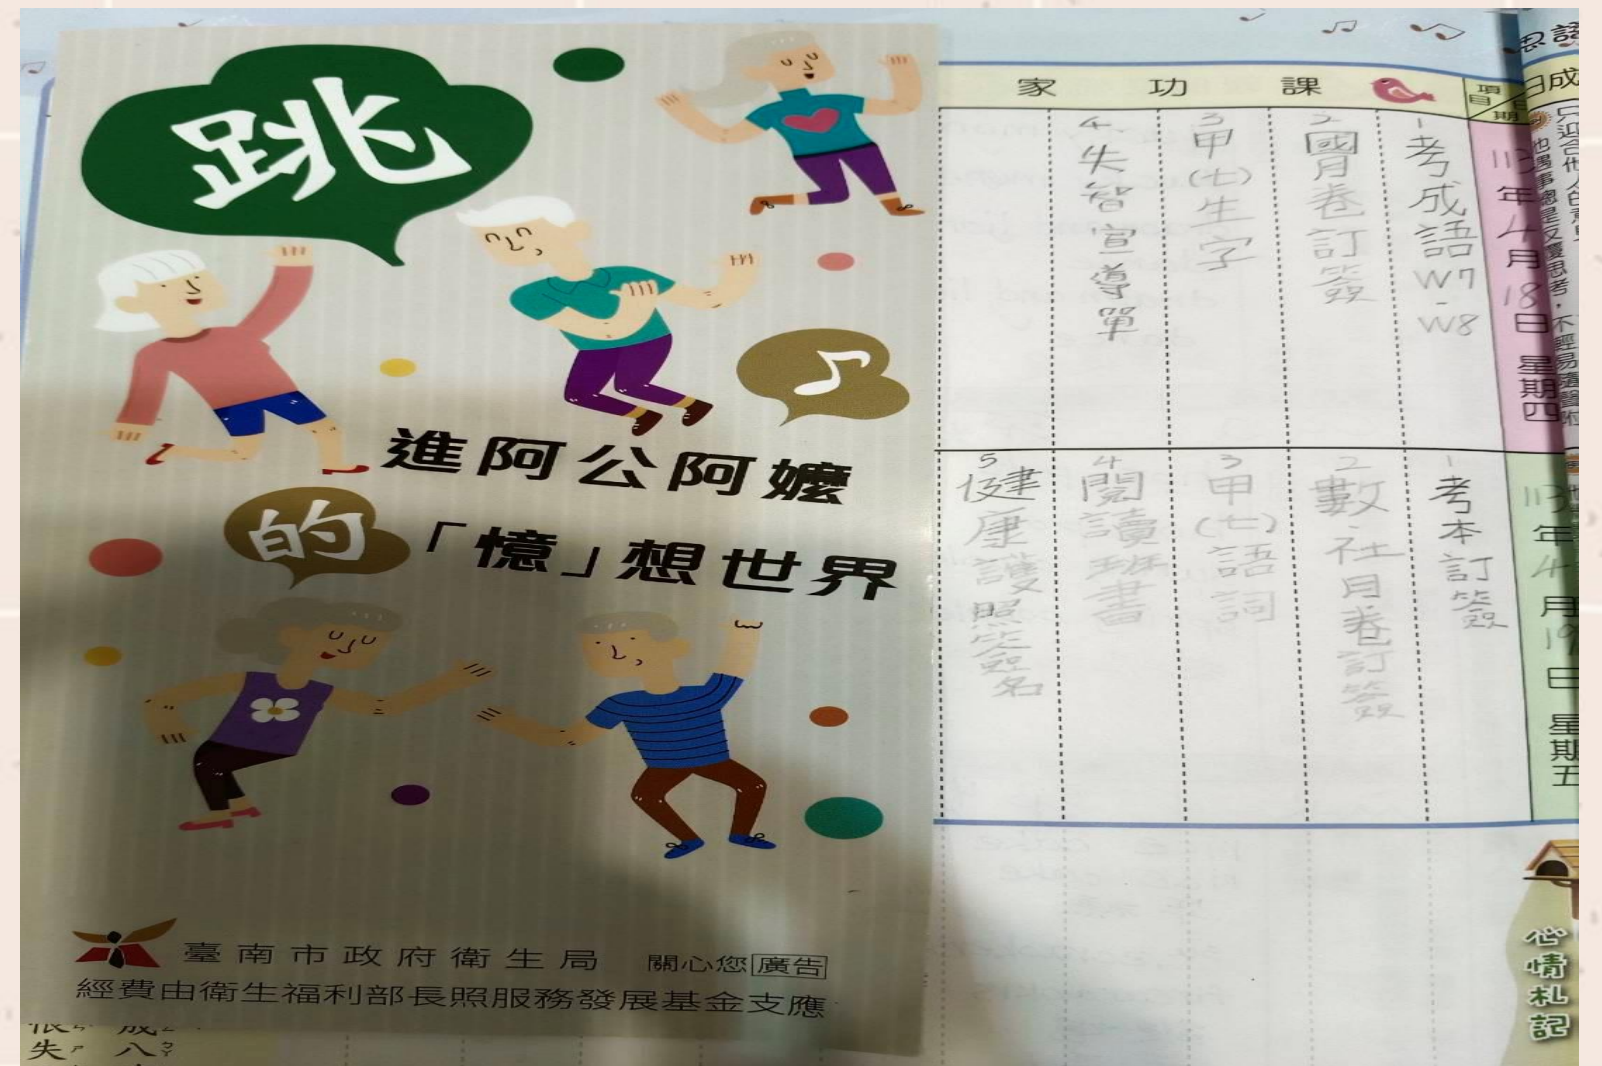 跳
進阿公阿嬤
的「憶」想世界
臺南市政府衛生局 關心您 廣告
經費由衛生福利部長照服務發展基金支應
家功課
項目
日期
113年4月18日星期四
1考成語W7-W8
2國月卷訂簽
3甲(七)生字
4失智宣導單
113年4月19日星期五
1考本訂簽
2數.社月卷訂簽
3甲(七)語詞
4閱讀班書
5健康護照簽名
心情札記